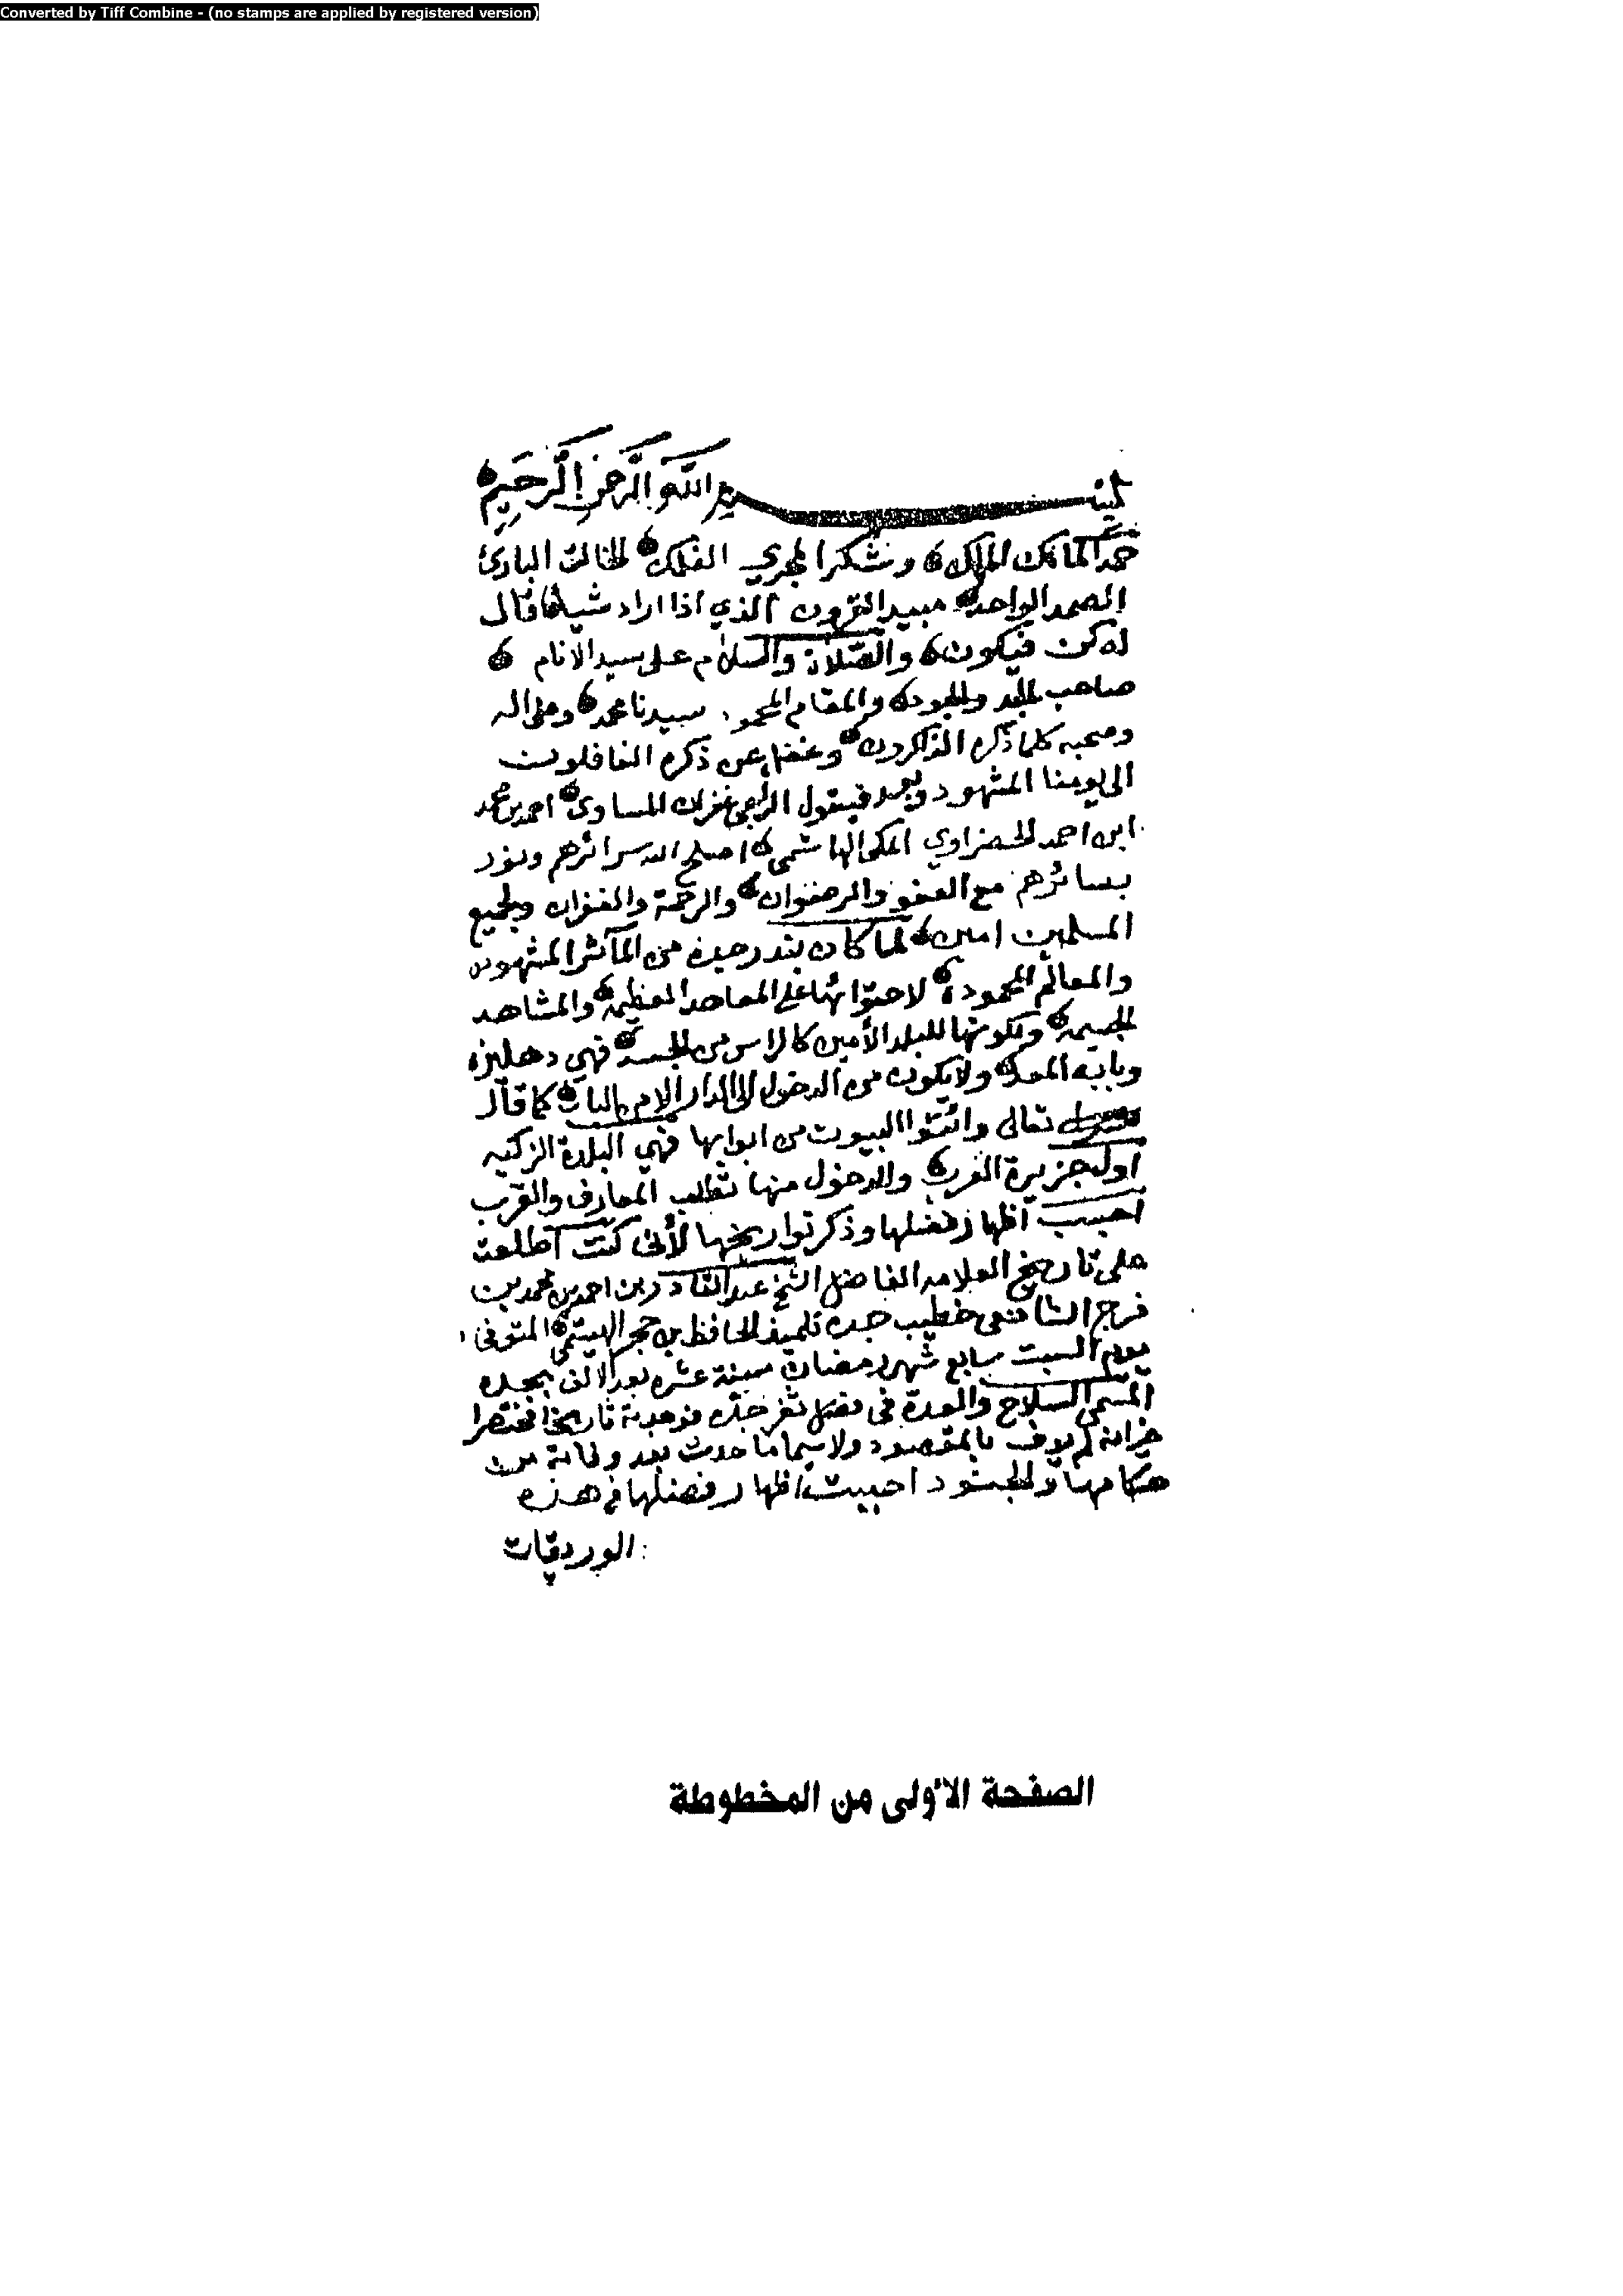 Converted by Tiff Combine - (no stamps are applied by registered version)
بسم الله الرحمن الرحيم
حمدا لمالك الملك وشكرا لمجري الفلك الخالق البادئ
الصمد الواحد مبيد القرون الذي اذا اراد شيئا قال
له كن فيكون والصلاة والسلام على سيد الانام
صاحب المجد والجود والمقام المحمود سيدنا محمد وعلى اله
وصحبه كلما ذكره الذاكرون وغفل عن ذكره الغافلون
الى يومنا المشهود وبعد فيقول الراجي غفران المساوى احمد بن محمد
ابن احمد الحضراوي المكي الهاشمي اصلح الله سرائرهم ونور
بسائرهم مع العفو والرضوان والرحمة والغفران وجميع
المسلمين امين لما كان بندر جده من المآثر المشهوده
والمعالم المحمودة لاحتوائها على المعاهد المعظمة والمشاهد
الجسيمة ولكونها للبلد الأمين كالراس من الجسد فهي دهليزه
وبابه المعد ولا يكون من الدخول الى الدار الا من الباب كما قال
تعالى وائتوا البيوت من ابوابها فهي البلدة الزكيه
اول جزيرة العرب والدخول منها لطالب المعارف والقرب
احببت اظهار فضلها وذكر تواريخها لأنى كنت اطلعت
على تاريخ العلامه الفاضل الشيخ عبد القادر بن احمد بن محمد بن
فرج الشافعى خطيب جده تلميذ الحافظ بن حجر الهيتمى المتوفى
يوم السبت سابع شهر رمضان سنة عشره بعد الالف بجده
المسمى السلاح والعدة فى فضل ثغر جده فوجدته تاريخا مختصرا
غير انه لم يوف بالمقصود ولا سيما ما حدث بعد وفاته من
حكامها والجنود احببت اظهار فضلها فى هذه
الورقات
الصفحة الأولى من المخطوطة